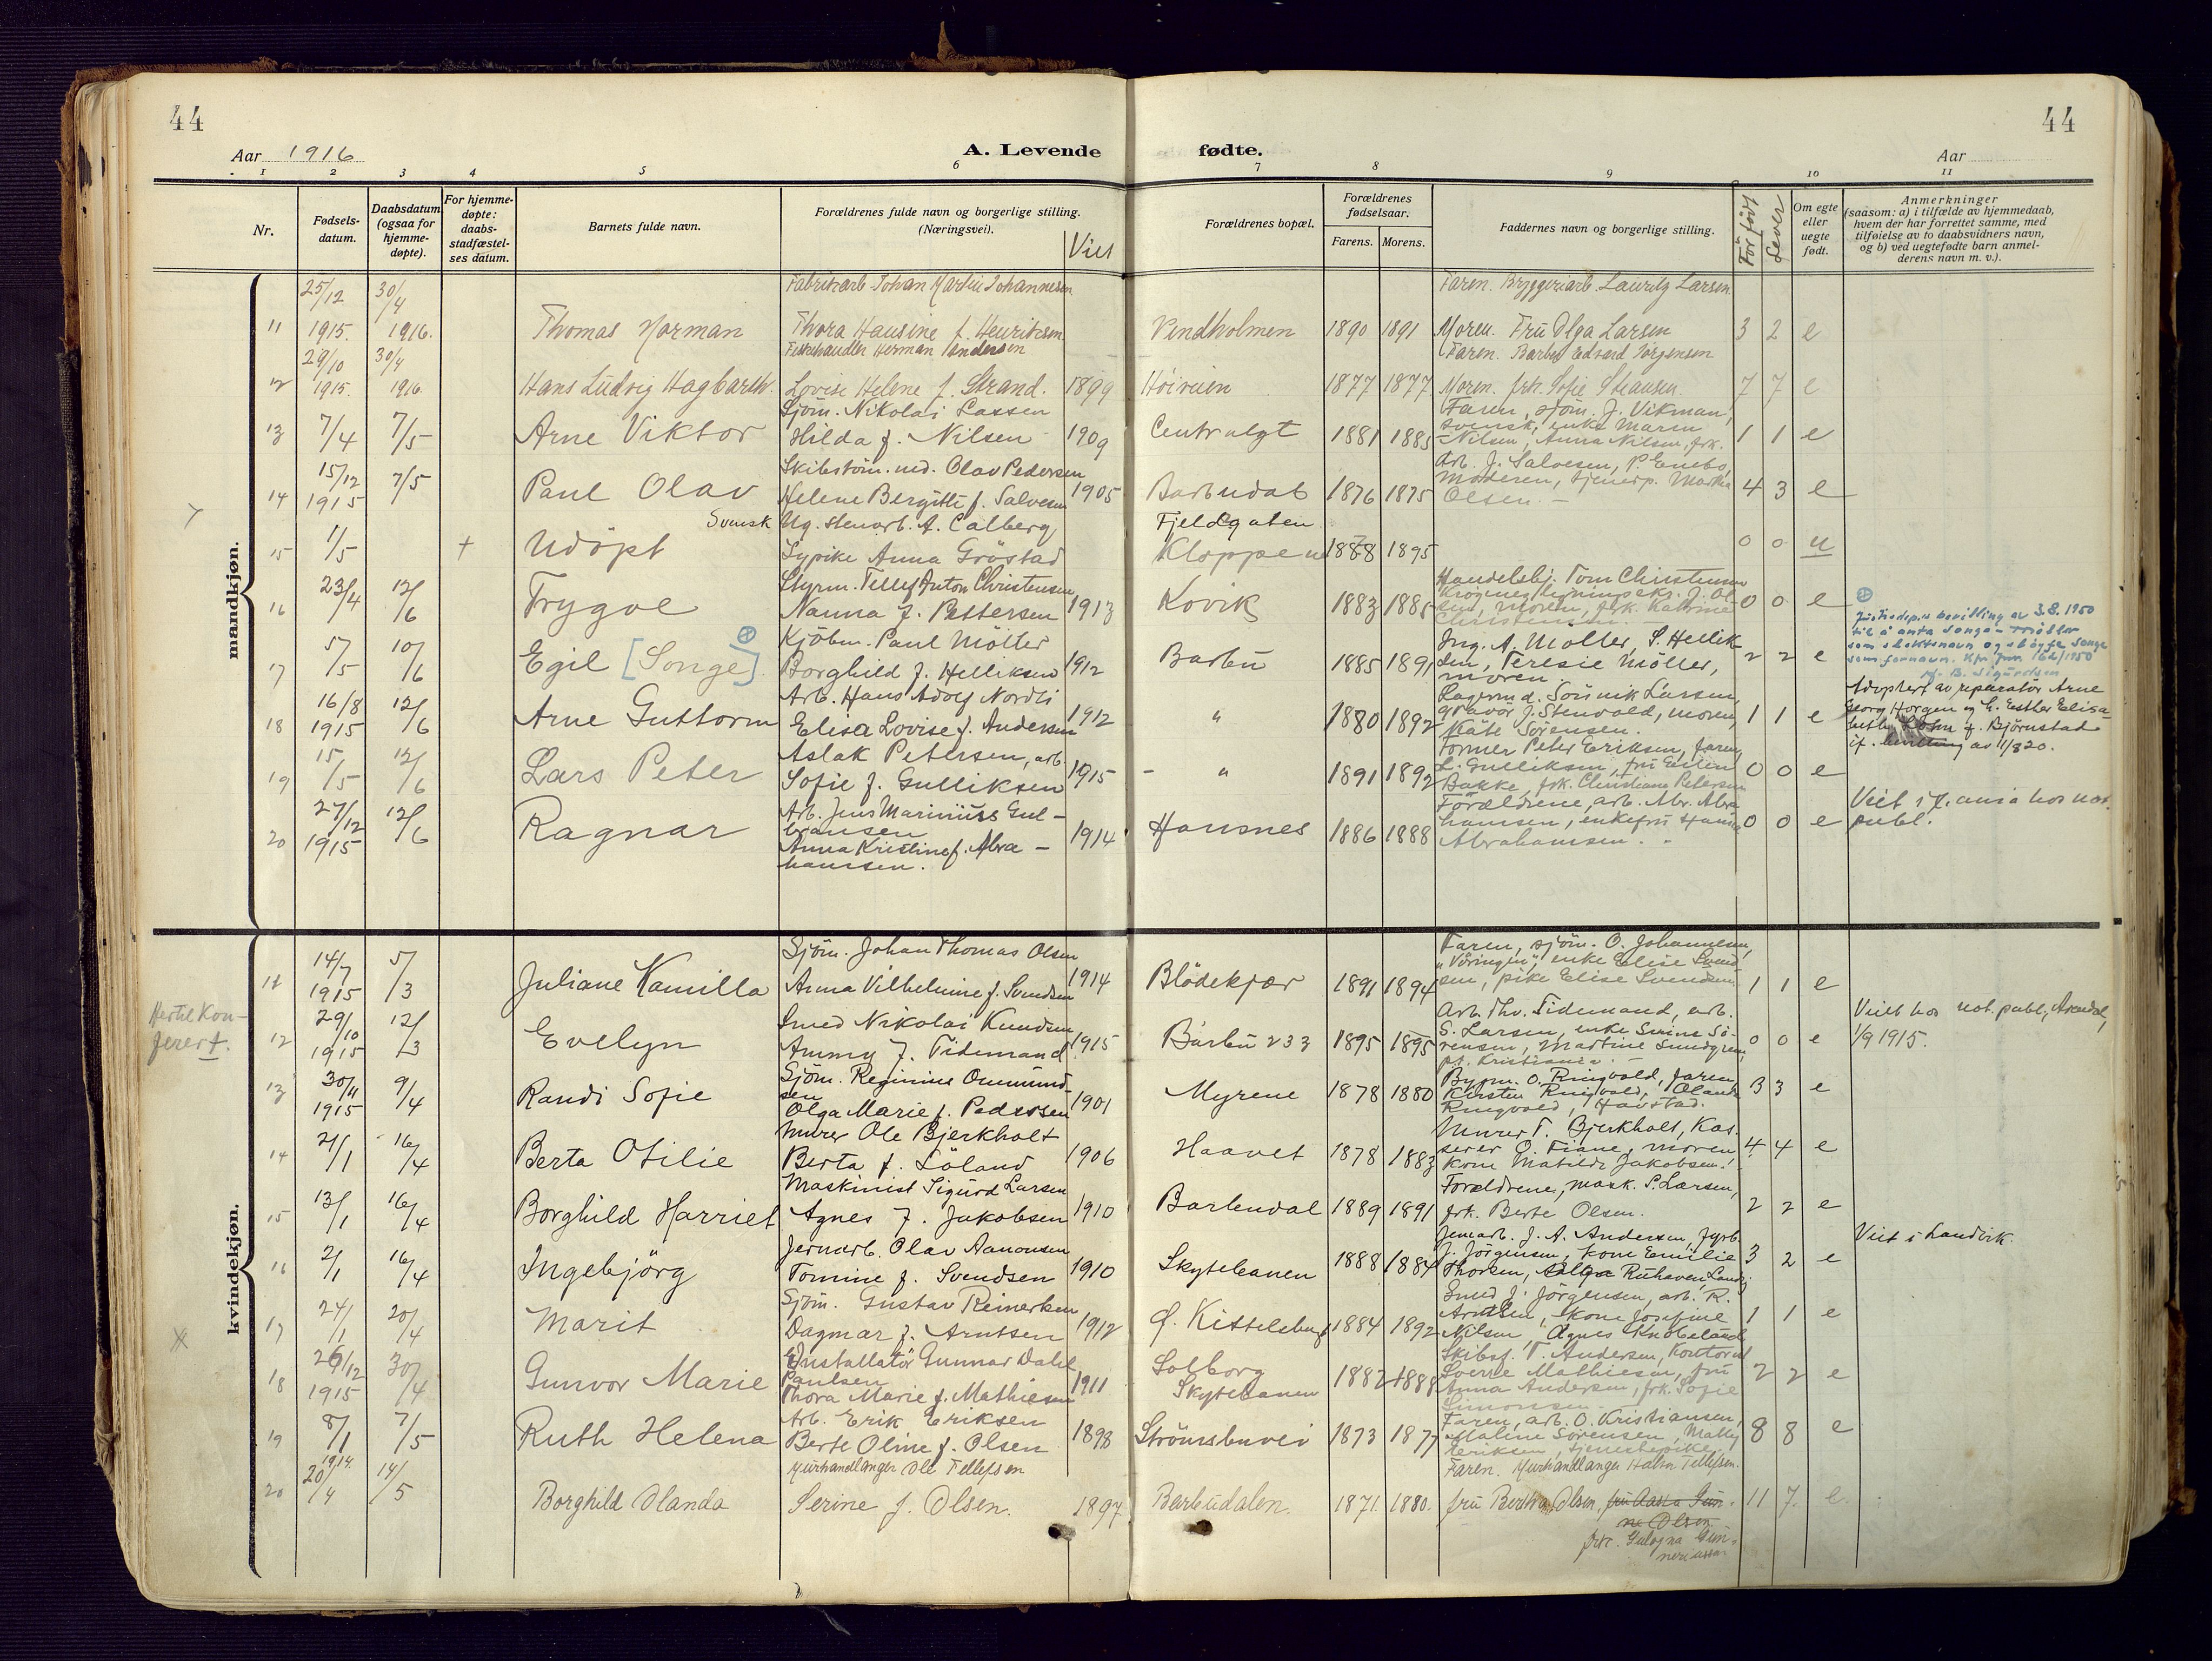 44
44
Aar 1916
A. Levende fødte.
Aar
1 2 3 4 5 6 7 8 9 10 11
Nr.
Fødsels-
datum.
Daabsdatum
(ogsaa for
hjemme-
døpte).
For hjemme-
døpte:
daabs-
stadfæstel-
ses datum.
Barnets fulde navn.
Forældrenes fulde navn og borgerlige stilling.
(Næringsvei).
Viet
Forældrenes bopæl.
Forældrenes
fødselsaar.
Farens. Morens.
Faddernes navn og borgerlige stilling.
Før født
Lever
Om egte
eller
uegte
født.
Anmerkninger
(saasom: a) i tilfælde av hjemmedaab,
hvem der har forrettet samme, med
tilføielse av to daabsvidners navn,
og b) ved uegtefødte barn anmel-
derens navn m. v.).
mandkjøn.
25/12 30/4 Fabrikarb. Johan Martin Johannesen Faren. Bryggeriarb. Lauritz Larsen.
11 1915. 1916. Thomas Norman Thora Hansine f. Henriksen Vindholmen 1890 1891 Moren. Fru Olga Larsen 3 2 e
29/10 30/4 Fiskehandler Herman Andersen Faren. Barber Edvard Jörgensen
12 1915. 1916 Hans Ludvig Hagbarth. Lovise Helene f. Strand. 1899 Höiveien 1877 1877 Moren. frk. Sofie 7 7 e
Sjöm. Nikolai Lassen Faren, sjöm. J. Vikman,
13 7/4 7/5 Arne Viktor Hilda f. Nilsen 1909 Centralgt 1881 1885 svensk, enke Maren
Nilsen, Anna Nilsen, frk. 1 1 e
15/12 7/5 Skibstöm. md. Olav Pedersen Arb. J. Salvesen, P. Enebo,
14 1915 Paul Olav Helene Bergitte f. Salvesen 1905 Barbudal 1876 1875 Moderen, tjenerp. Marta
Olsen. 4 3 e
Svensk Ug. stenarb. A. Calberg Fjeldgaten
15 1/5 + Udöpt Sypike Anna Gröstad Kloppen 1888 1895 0 0 u
23/4 12/6 Styrm. Tellef Anton Christensen Handelsbj. Tom Christensen
16 Trygve Nanna f. Pettersen 1913 Kovik 1883 1885 moren, frk. Katrine
Christensen. 0 0 e
5/5 10/6 Kjöbm. Paul Möller Ing. A. Möller, S. Hellik-
17 Egil [Songe] Borghild f. Helliksen 1912 Barbu 1885 1891 sen, Teresie Möller,
moren. 2 2 e
Justisdeps bevilling av 3.8.1950
til å anta Songe-Möller
som slektsnavn og sløyfe Songe
som fornavn.
16/8 12/6 Arb. Hans Adolf Nordli Lagermd. Sörnik Larsen,
18 1915 Arne Guttorm Elisa Lovise f. Andersen 1912 " 1880 1892 gravör J. Stenvold, moren,
Käte Sörensen. 1 1 e
Adoptert av reparatör Arne
Georg Horgen og h. Esther Elisa-
beth f. Björnstad
if. bevilling av 1/3 20.
15/5 12/6 Aslak Petersen, arb. Former Peter Eriksen, faren,
19 Lars Peter Sofie f. Gulliksen 1915 - " 1891 1892 L. Gulliksen, fru
Bakke, frk. Christiane Petersen 0 0 e
27/12 12/6 Arb. Jens Marinius Gul- Forældrene, arb. Abr. Abra-
20 1915 Ragnar bransen 1914 Hausnes 1886 1888 hamsen, enkefru Hanna
Anna Kristine f. Abra- Abrahamsen. 0 0 e
hamsen.
Viet i hos not.
publ.
kvindekjøn.
14/7 5/3 Sjöm. Johan Thomas Olsen Faren, sjöm. O. Johannesen,
11 1915 Juliane Kamilla Anna Vilhelmine f. Svendsen 1914 Blödekjær 1891 1894 "Vöringen", enke Elise Svend-
sen, pike Elise Svendsen 1 1 e
Hertil Kon-
ferert.
29/10 12/3 Smed Nikolai Knudsen Arb. Thv. Tidemand, arb.
12 1915 Evelyn Ammy f. Tidemand 1915 Barbu 233 1895 1895 S. Larsen, enke Serine Sö-
rensen, Martine Sundgren
pt. Kristiania. 0 0 e
Viet hos not. publ, Arendal,
1/9 1915.
30/11 9/4 Sjöm. Reginius Ommund- Bygm. O. Ringvold, faren,
13 1915 Randi Sofie sen
Olga Marie f. Pedersen 1901 Myrene 1878 1880 Kirsten Ringvold, Olanda
Ringvold, Havstad. 3 3 e
21/1 16/4 Murer Ole Bjerkholt Murer T. Bjerkholt, Kas-
14 Berta Otilie Berta f. Löland 1906 Haavet 1878 1883 serer O. Fiane, moren,
kone Matilde Jakobsen. 4 4 e
13/1 16/4 Maskinist Sigurd Larsen Forældrene, mask. S. Larsen,
15 Borghild Harriet Agnes f. Jakobsen 1910 Barbudal 1889 1891 frk. Berte Olsen. 2 2 e
2/1 16/4 Jernarb. Olav Aanonsen Jernarb. J. A. Andersen, fyrb.
16 Ingebjörg Tomine f. Svendsen 1910 Skytebanen 1888 1884 J. Jörgensen, kone Emilie
Thorsen, Ruhaven, Landv. 3 2 e
Viet i Landvik.
24/1 20/4 Sjöm. Gustav Reinertsen Smed J. Jörgensen, arb. R.
17 Marit Dagmar f. Arntsen 1912 Ö. Kittelsbugt 1884 1892 Arntsen, kone Josefine
Nilsen, Agnes Knöbeland 1 1 e
26/12 30/4 Installatör Gunnar Dahl Skibsf. T. Andersen, Kontorist
18 1915 Gunvor Marie Paulsen
Thora Marie f. Mathiesen 1911 Solborg
Skytebanen 1882 1888 Sverre Mathiesen, fru
Anna Andersen, frk. Sofie
Simonsen. 2 2 e
8/1 7/5 Arb. Erik Eriksen Faren, arb. O. Kristiansen,
19 Ruth Helena Berte Oline f. Olsen 1898 Strömsbuvei 1873 1877 Maline Sörensen, Mally
Eriksen, tjenestepike. 8 8 e
1914. Murhandlanger Ole Tellefsen Faren. Murhandlanger Halvor Tellefsen.
20 20/4 14/5 Borghild Olanda Serine f. Olsen. 1897. Barbudalen. 1871. 1880. fru Bertha Olsen, fru Aasta Gun-
ne Olsen
frk. Gulagna Gun-
neriussen 11 7. e.